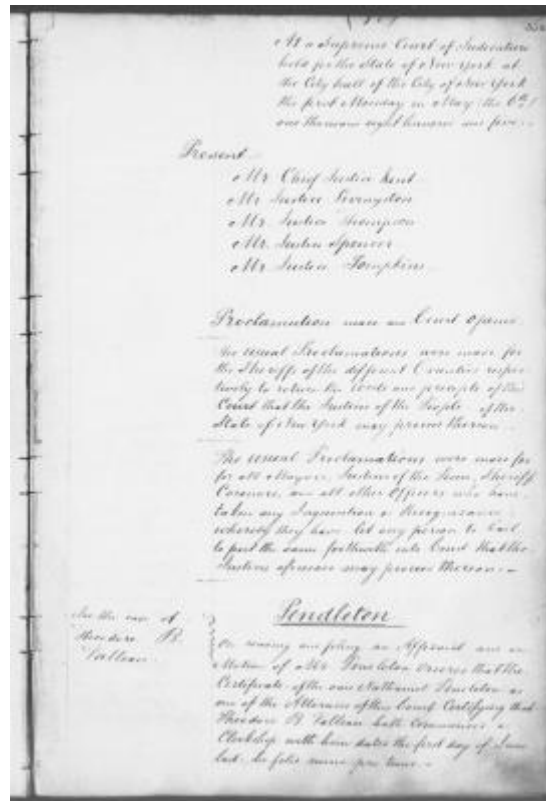 At a Supreme Court of Judicature
held for the State of New York at
the City hall of the City of New York
the first Monday in May the 6th
one thousand eight hundred and five
Present
Mr. Chief Justice Kent
Mr. Justice Livingston
Mr. Justice Thompson
Mr. Justice Spencer
Mr. Justice Tompkins
Proclamation made and Court opened
The usual Proclamations were made for
the Sheriffs of the different Counties respec
tively to return the Writs and precepts of this
Court that the Justices of the People of the
State of New York may proceed thereon
The usual Proclamations were made for
for all Mayors, Justices of the Peace, Sheriffs
Coroners, and all other Officers who have
taken any Inquisition or Recognizance
whereby they have let any person to bail
to put the same forthwith into Court that the
Justices may proceed thereon
Pendleton
In the case of
Theodore B.
On reading and filing an and on
Motion of Mr. Pendleton Ordered that the
Certificate of the said Nathaniel Pendleton as
one of the Attornies of this Court Certifying that
Theodore B. hath Commenced a
Clerkship with him dated the first day of June
last, be filed nunc pro tunc